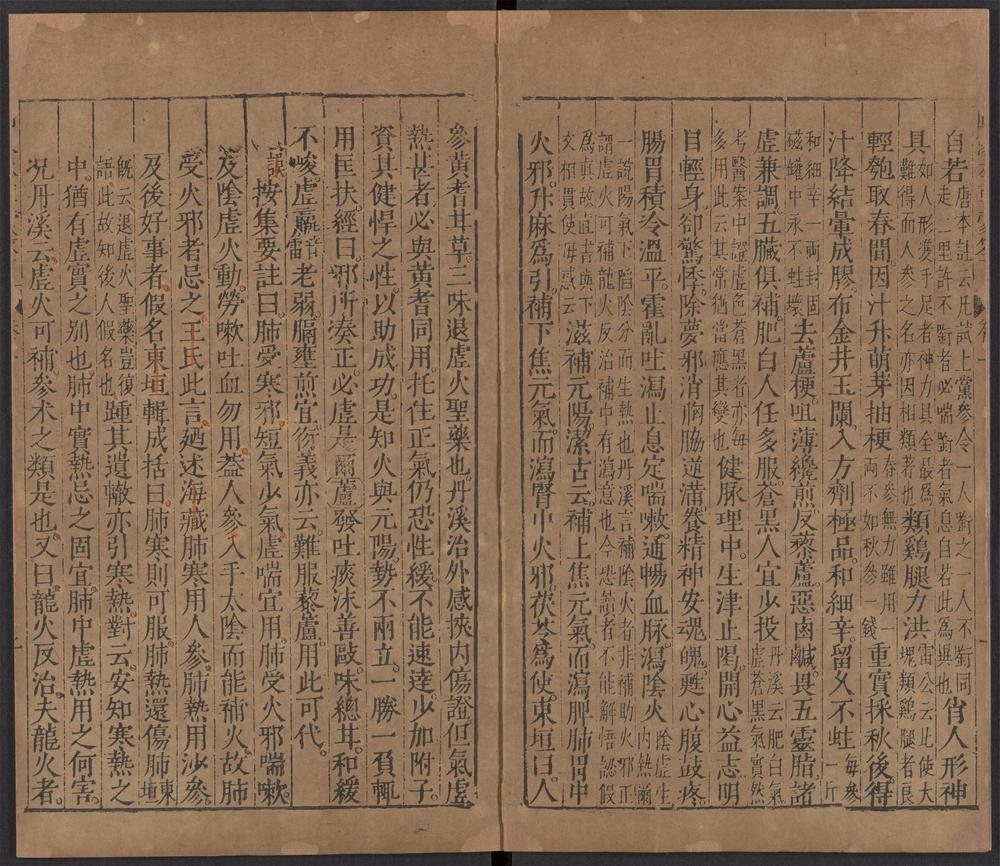 自若唐本註云凡試上黨參令一人啣之一人不啣同走一里許不啣者必喘啣者氣息自若此為異也肖人形神
具如人形獲手足者神力具全最為難得而人參之名亦因相類著也類鷄腿力洪雷公云此使大塊類鷄腿者良
輕匏取春間因汁升萌芽抽梗春參無力雖用一兩不如秋參一錢重實採秋後得
汁降結暈成膠布金井玉闌入方劑極品和細辛留久不蛀每參一斤
和細辛一兩封固磁罐中永不蛀壞去蘆梗咀薄纔煎反藜蘆惡鹵鹹畏五靈脂諸
虛兼調五臟俱補肥白人任多服蒼黑人宜少投丹溪云肥白氣虛蒼黑氣實然
考醫案中證虛色蒼黑者亦每多用此云其常猶當應其變也健脉理中生津止渴開心益志明
目輕身卻驚悸除夢邪消胸脇逆滿養精神安魂魄甦心腹鼓疼
腸胃積冷溫平霍亂吐瀉止息定喘嗽通暢血脉瀉陰火陰虛生內熱爾
一說陽氣下䧟陰分而生熱也丹溪言補陰火者非補助火邪正謂虛火可補龍火反治補中有瀉意也今恐讀者不能解悟認假
為真故直書與下文相貫使毋惑云滋補元陽潔古云補上焦元氣而瀉脾肺胃中
火邪升麻為引補下焦元氣而瀉腎中火邪茯苓為使東垣曰人
參黃耆甘草三味退虛火聖藥也丹溪治外感挾內傷證但氣虛
熱甚者必與黃耆同用托住正氣仍恐性緩不能速達少加附子
資其健悍之性以助成功是知火與元陽勢不兩立一勝一負輒
用匡扶經曰邪所凑正必虛是爾蘆發吐痰沫善敺味總甘和緩
不峻虛羸音雷老弱膈壅煎宜衍義亦云難服藜蘆用此可代
謨按集要註曰肺受寒邪短氣少氣虛喘宜用肺受火邪喘嗽
及陰虛火動勞嗽吐血勿用蓋人參入手太陰而能補火故肺
受火邪者忌之王氏此言廼述海藏肺寒用人參肺熱用沙參
及後好事者假名東垣輯成括曰肺寒則可服肺熱還傷肺東垣
既云退虛火聖藥豈復語此故知後人假名也踵其遺轍亦引寒熱對云安知寒熱之
中猶有虛實之別也肺中實熱忌之固宜肺中虛熱用之何害
況丹溪云虛火可補參朮之類是也又曰龍火反治夫龍火者